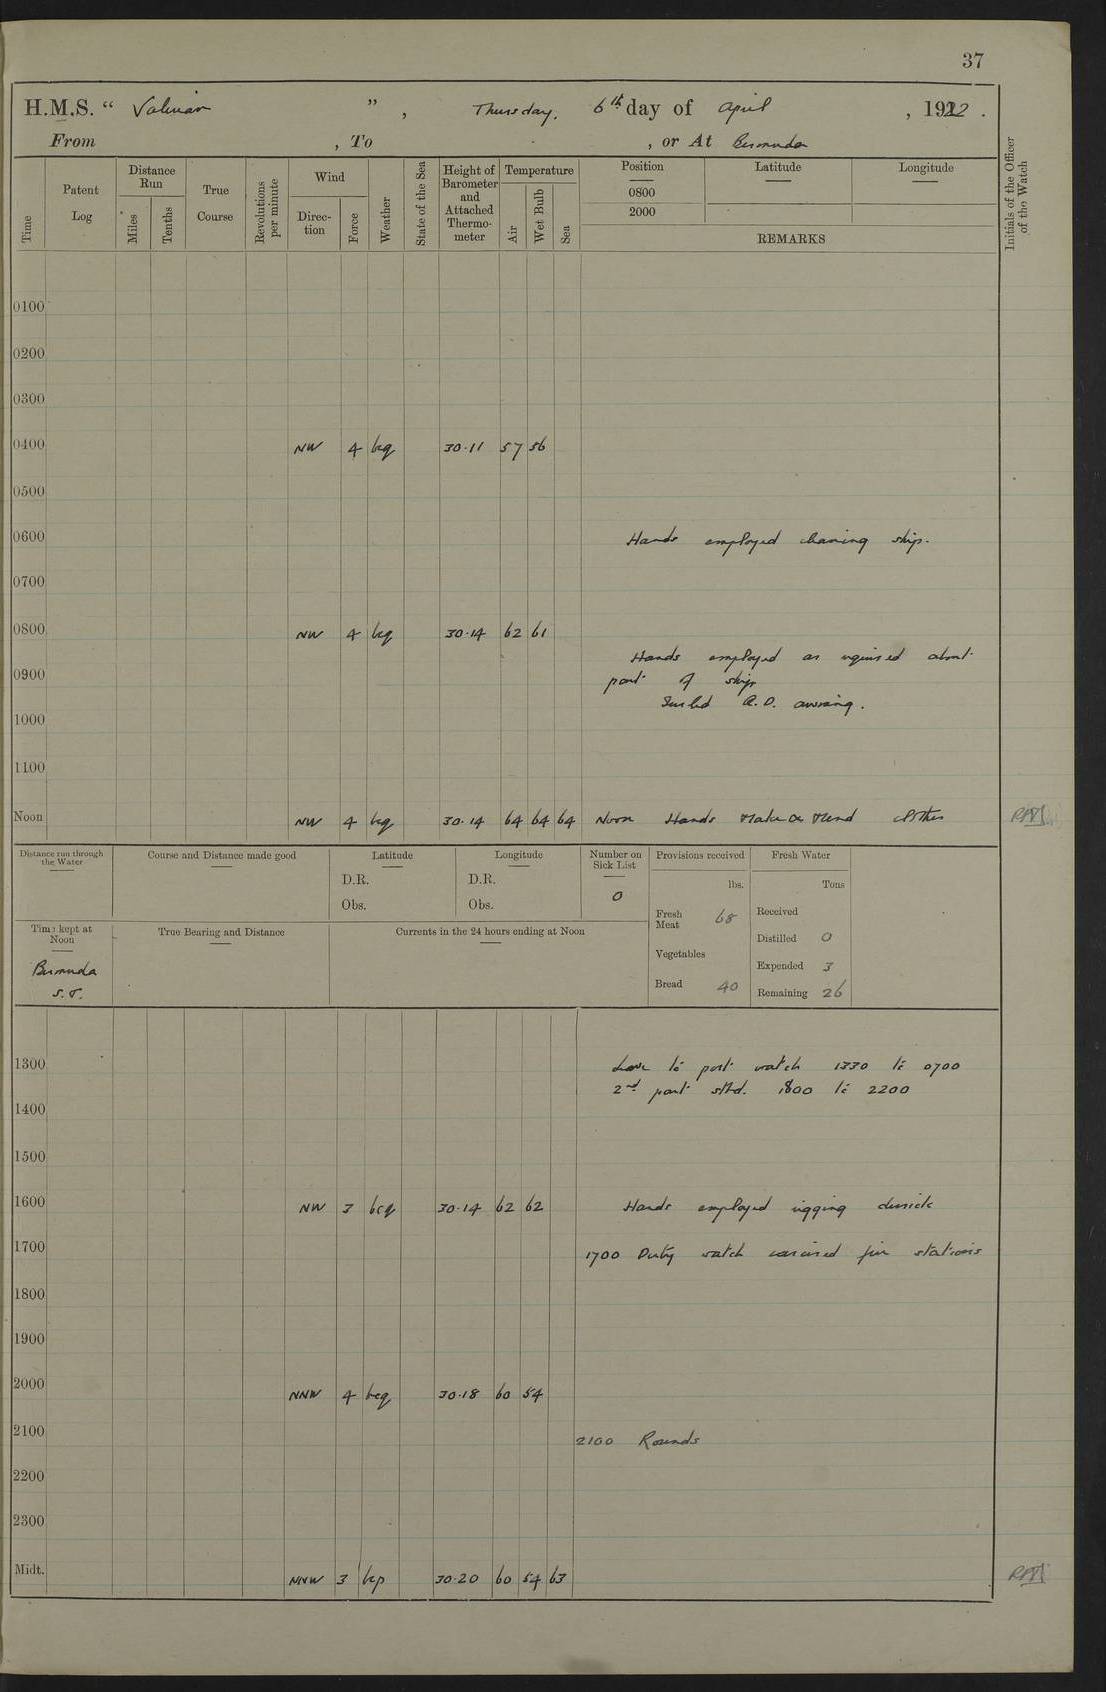 37
H.M.S. “ Valerian ”, Thursday, 6th day of April, 1922.
From , To , or At Bermuda
Time
Patent Log
Distance Run
Miles
Tenths
True Course
Revolutions per minute
Wind
Direction
Force
Weather
State of the Sea
Height of Barometer and Attached Thermometer
Temperature
Air
Wet Bulb
Sea
Position
0800
2000
Latitude
Longitude
REMARKS
Initials of the Officer of the Watch
0100
0200
0300
0400 NW 4 bcq 30.11 57 56
0500
0600 Hands employed cleaning ship.
0700
0800 NW 4 bcq 30.14 62 61
Hands employed as required about
0900 part of ship
Q.D. awning.
1000
1100
Noon NW 4 bcq 30.14 64 64 64 Noon Hands Make & Mend clothes
Distance run through the Water
Course and Distance made good
Latitude
D.R.
Obs.
Longitude
D.R.
Obs.
Number on Sick List
0
Provisions received
lbs.
Fresh Meat 68
Vegetables
Bread 40
Fresh Water
Tons
Received
Distilled 0
Expended 3
Remaining 26
Time kept at Noon
Bermuda
S.T.
True Bearing and Distance
Currents in the 24 hours ending at Noon
1300 Leave to port watch 1330 to 0700
2nd part stbd. 1800 to 2200
1400
1500
1600 NW 3 bcq 30.14 62 62 Hands employed rigging derrick
1700 1700 Duty watch exercised fire stations
1800
1900
2000 NNW 4 bcq 30.18 60 54
2100 2100 Rounds
2200
2300
Midt. NNW 3 bcp 30.20 60 54 63